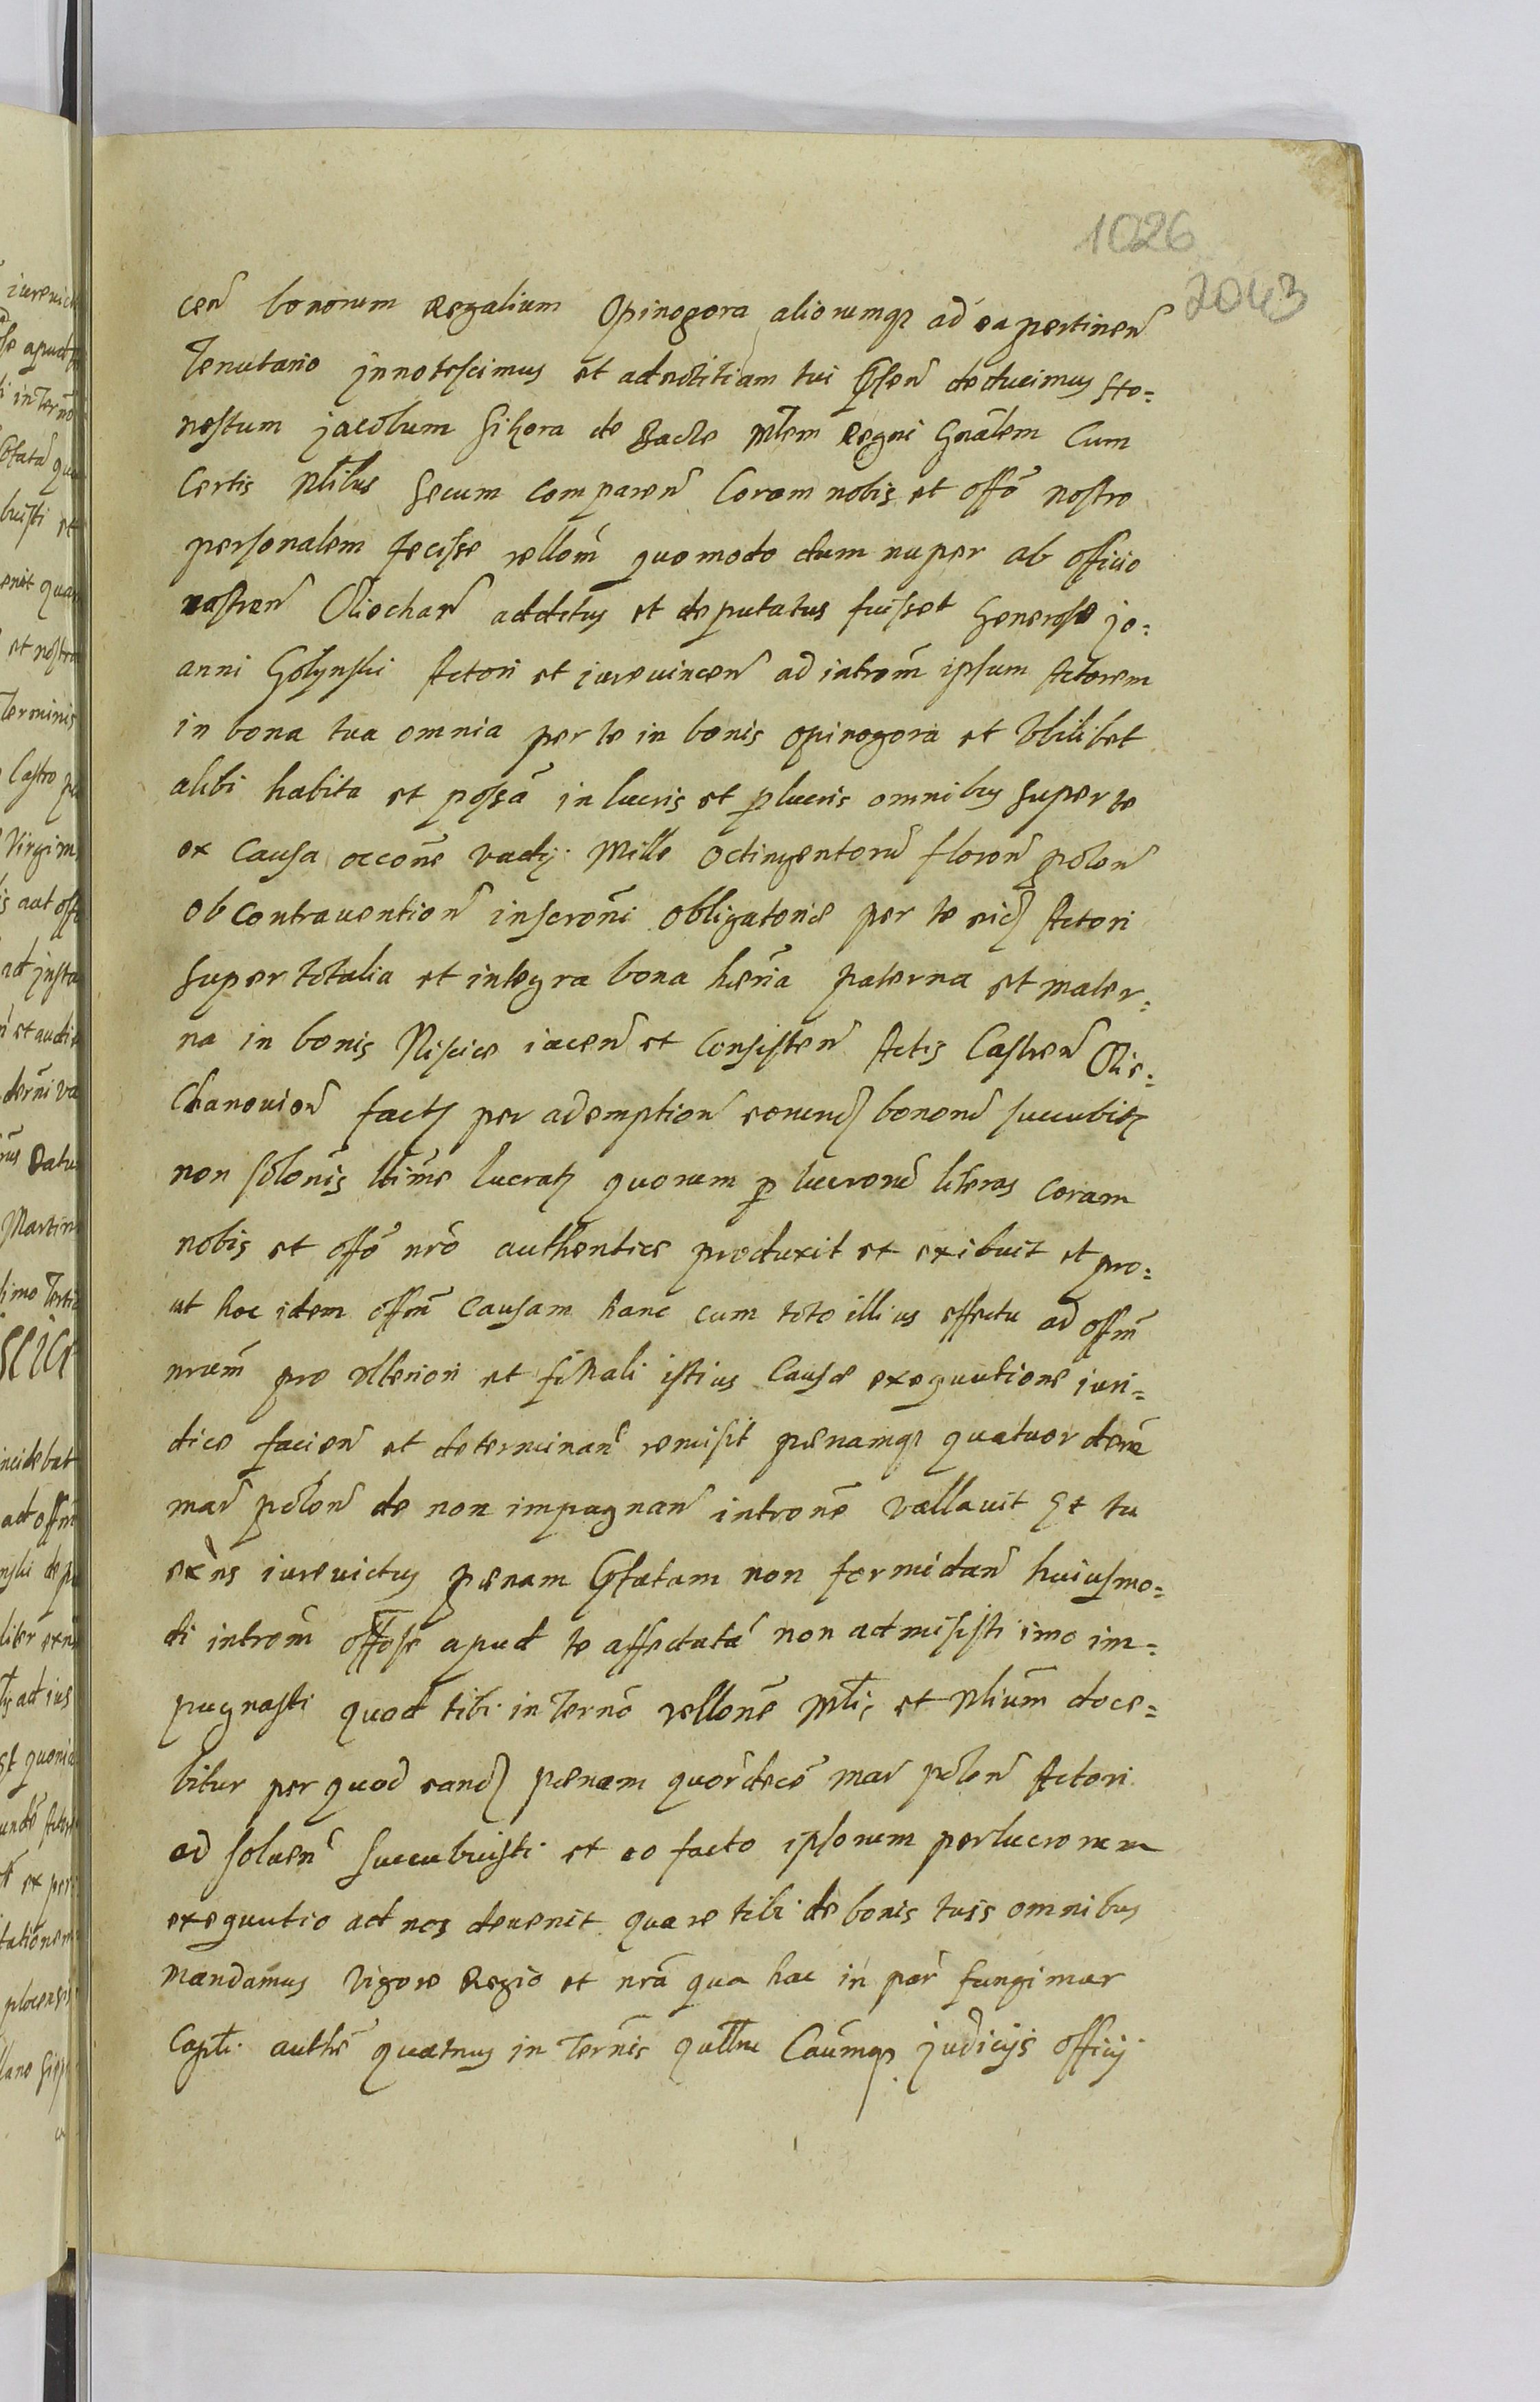 1026
2043
cen̄ bonorum Regalium Opinogora aliorumq₃ ad ea pertinen̄
Tenutario jnnotescimus et ad notitiam tui deducimus Ho=
nestum jacobum Sikora de Mlem Regni Gnālem Cum
Certis Nlibus Secum Comparen̄ Coram nobis et offo nostro
personalem fecisse rellom̄ quomodo dum nuper ab officio
castren̄ Ciechan̄ additus et deputatus fuisset Generoso jo=
anni Golynski Actori et iurevincen̄ ad introm̄ ipsum Actorem
in bona tua omnia per te in bonis opinogora et Vbilibet
alibi habita et possā in lucris et plucris omnibus super te
ex Causa accone vadij Mille Octingentorū floren̄ polon̄
ob Contravention̄ inscroni obligatoriæ per te eid Actori
super totalia et integra bona hæria paterna et mater=
na in bonis Niscice iacen̄ et Consisten̄ Actis Castren̄ Cie=
chanovien̄ fact per ademption̄ eorund bonorū succubit
non solonis ltime lucrat quorum p lucrorū literas coram
nobis et offo nro authentice produxit et exibuit et pro=
ut hoc idem offm Causam hanc cum toto illius effectu ad offm
nrum̄ pro vlteriori et finali istius Causæ exequutione iuri=
dice facien̄ et determinan̄ remisit pænamq₃ quatuor decē
mar̄ polon̄ de non impugnan̄ introne vallavit Et tu
exn̄s iurevictus pænam non formidan̄ huiusmo=
di introm̄ offose apud te affectatā non admisisti imo im=
pugnasti quod tibi in Terno rellone Mlis et Nlium̄ doce=
bitur per quod eand pænam quordecē mar̄ polon̄ Actori
ad soluen̄ succubuisti et eo facto ipsorum perlucrorum
exequutio ad nos devenit quare tibi de bonis tuis omnibus
mandamus Vigore Regio et nrā qua hac in par̄ fungimur
Capli authe quatenus in Ternis qllnr Caumq₃ judicijs officij